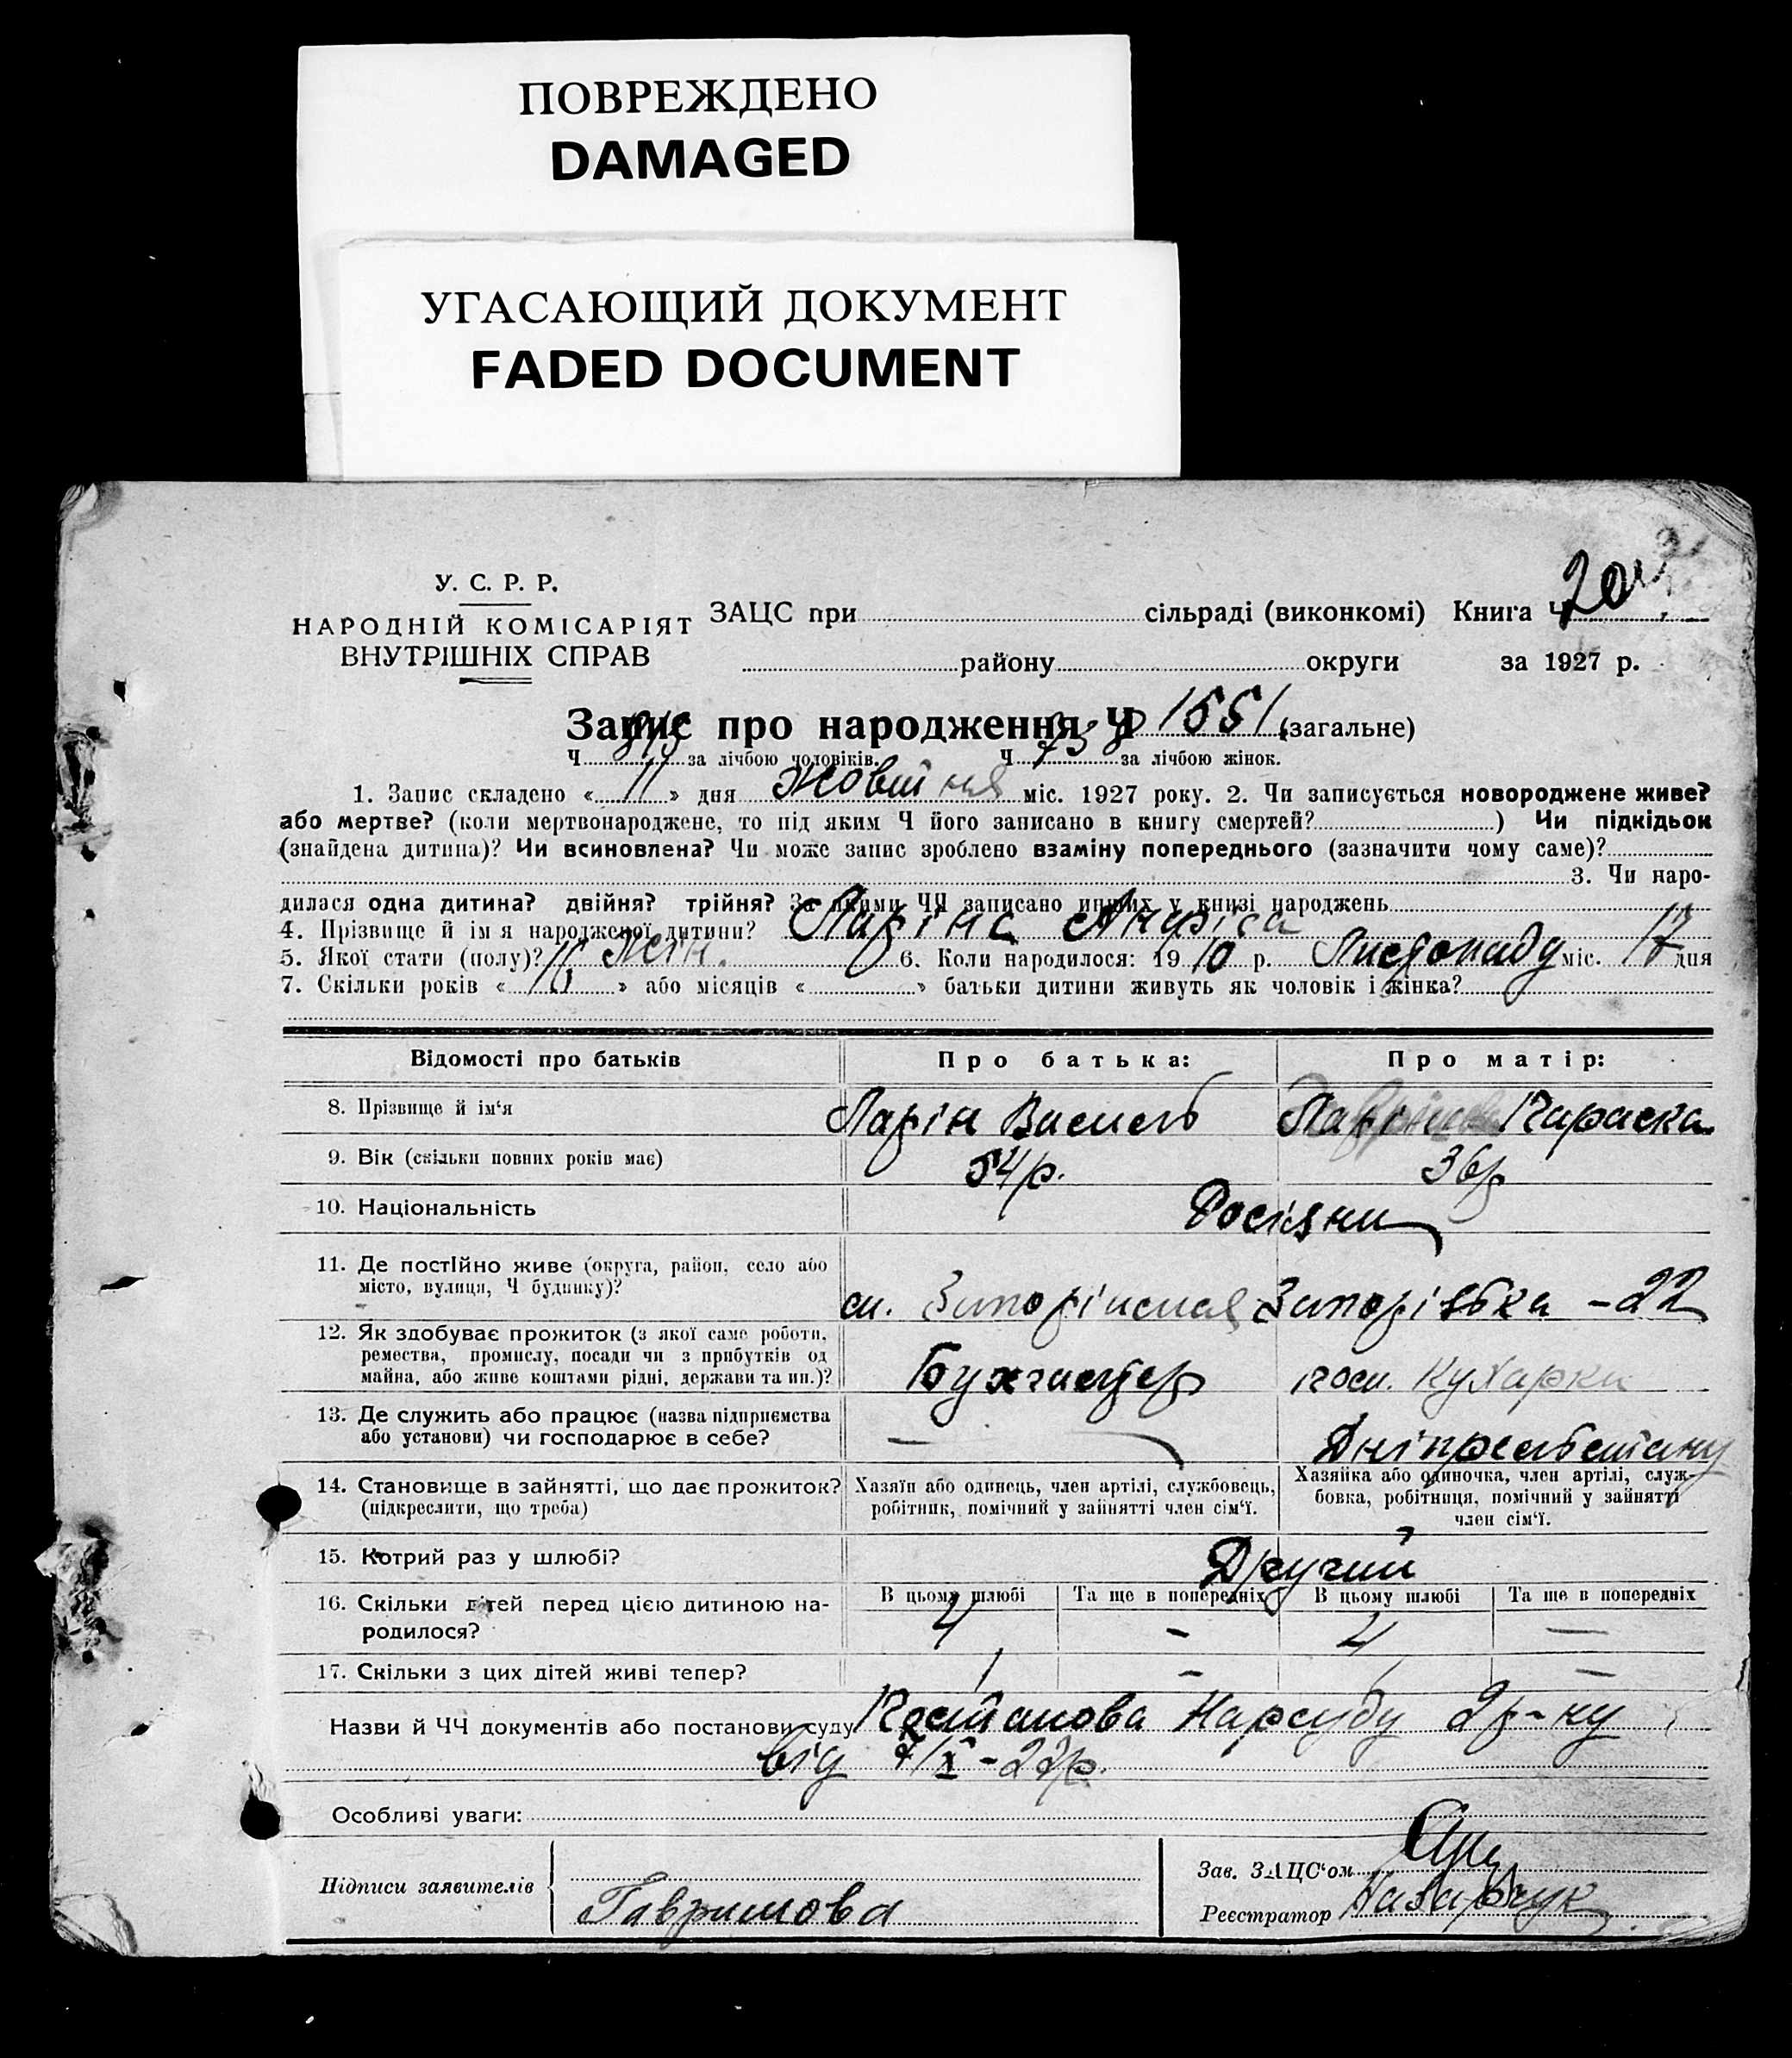 ПОВРЕЖДЕНО
DAMAGED
УГАСАЮЩИЙ ДОКУМЕНТ
FADED DOCUMENT
У. С. Р. Р.
НАРОДНІЙ КОМІСАРІЯТ
ВНУТРІШНІХ СПРАВ
ЗАЦС при сільраді (виконкомі) Книга Ч
району округи за 1927 р.
Запис про народження Ч 1551 (загальне)
Ч за лічбою чоловіків. Ч за лічбою жінок.
1. Запис складено « 11 » дня Жовтня міс. 1927 року. 2. Чи записується новороджене живе?
або мертве? (коли мертвонароджене, то під яким Ч його записано в книгу смертей? ) Чи підкідьок
(знайдена дитина)? Чи всиновлена? Чи може запис зроблено взаміну попереднього (зазначити чому саме)?
3. Чи наро-
дилася одна дитина? двійня? трійня? За якими ЧЧ записано инших у книзі народжень
4. Прізвище й ім я народженої дитини? Ларіна
5. Якої стати (полу)? жін. 6. Коли народилося: 1910 р. Листопаду міс. 17 дня
7. Скільки років « 16 » або місяців « » батьки дитини живуть як чоловік і жінка?
Відомості про батьків Про батька: Про матір:
8. Прізвище й ім‘я Ларін Василь Параска
9. Вік (скільки повних років має) 54р. 36р
10. Національність Росіяни
11. Де постійно живе (округа, район, село або
місто, вулиця, Ч будинку)? - 22
12. Як здобуває прожиток (з якої саме роботи,
ремества, промислу, посади чи з прибутків од
майна, або живе коштами рідні, держави та ин.)? Бухгалтер Кухарка
13. Де служить або працює (назва підприємства
або установи) чи господарює в себе? —
14. Становище в зайнятті, що дає прожиток?
(підкреслити, що треба)
Хазяїн або одинець, член артілі, службовець,
робітник, помічний у зайнятті член сім‘ї.
Хазяйка або одиночка, член артілі, служ-
бовка, робітниця, помічний у зайнятті
член сім‘ї.
15. Котрий раз у шлюбі? Другий
16. Скільки дітей перед цією дитиною на-
родилося?
В цьому шлюбі Та ще в попередніх В цьому шлюбі Та ще в попередніх
4 - 4 —
17. Скільки з цих дітей живі тепер? 1 - 1 —
Назви й ЧЧ документів або постанови суду Постанова Нарсуду 2р-ну
від
Особливі уваги:
Підписи заявителів
Гаврилова
Зав. ЗАЦС‘ом
Реєстратор Назарчук